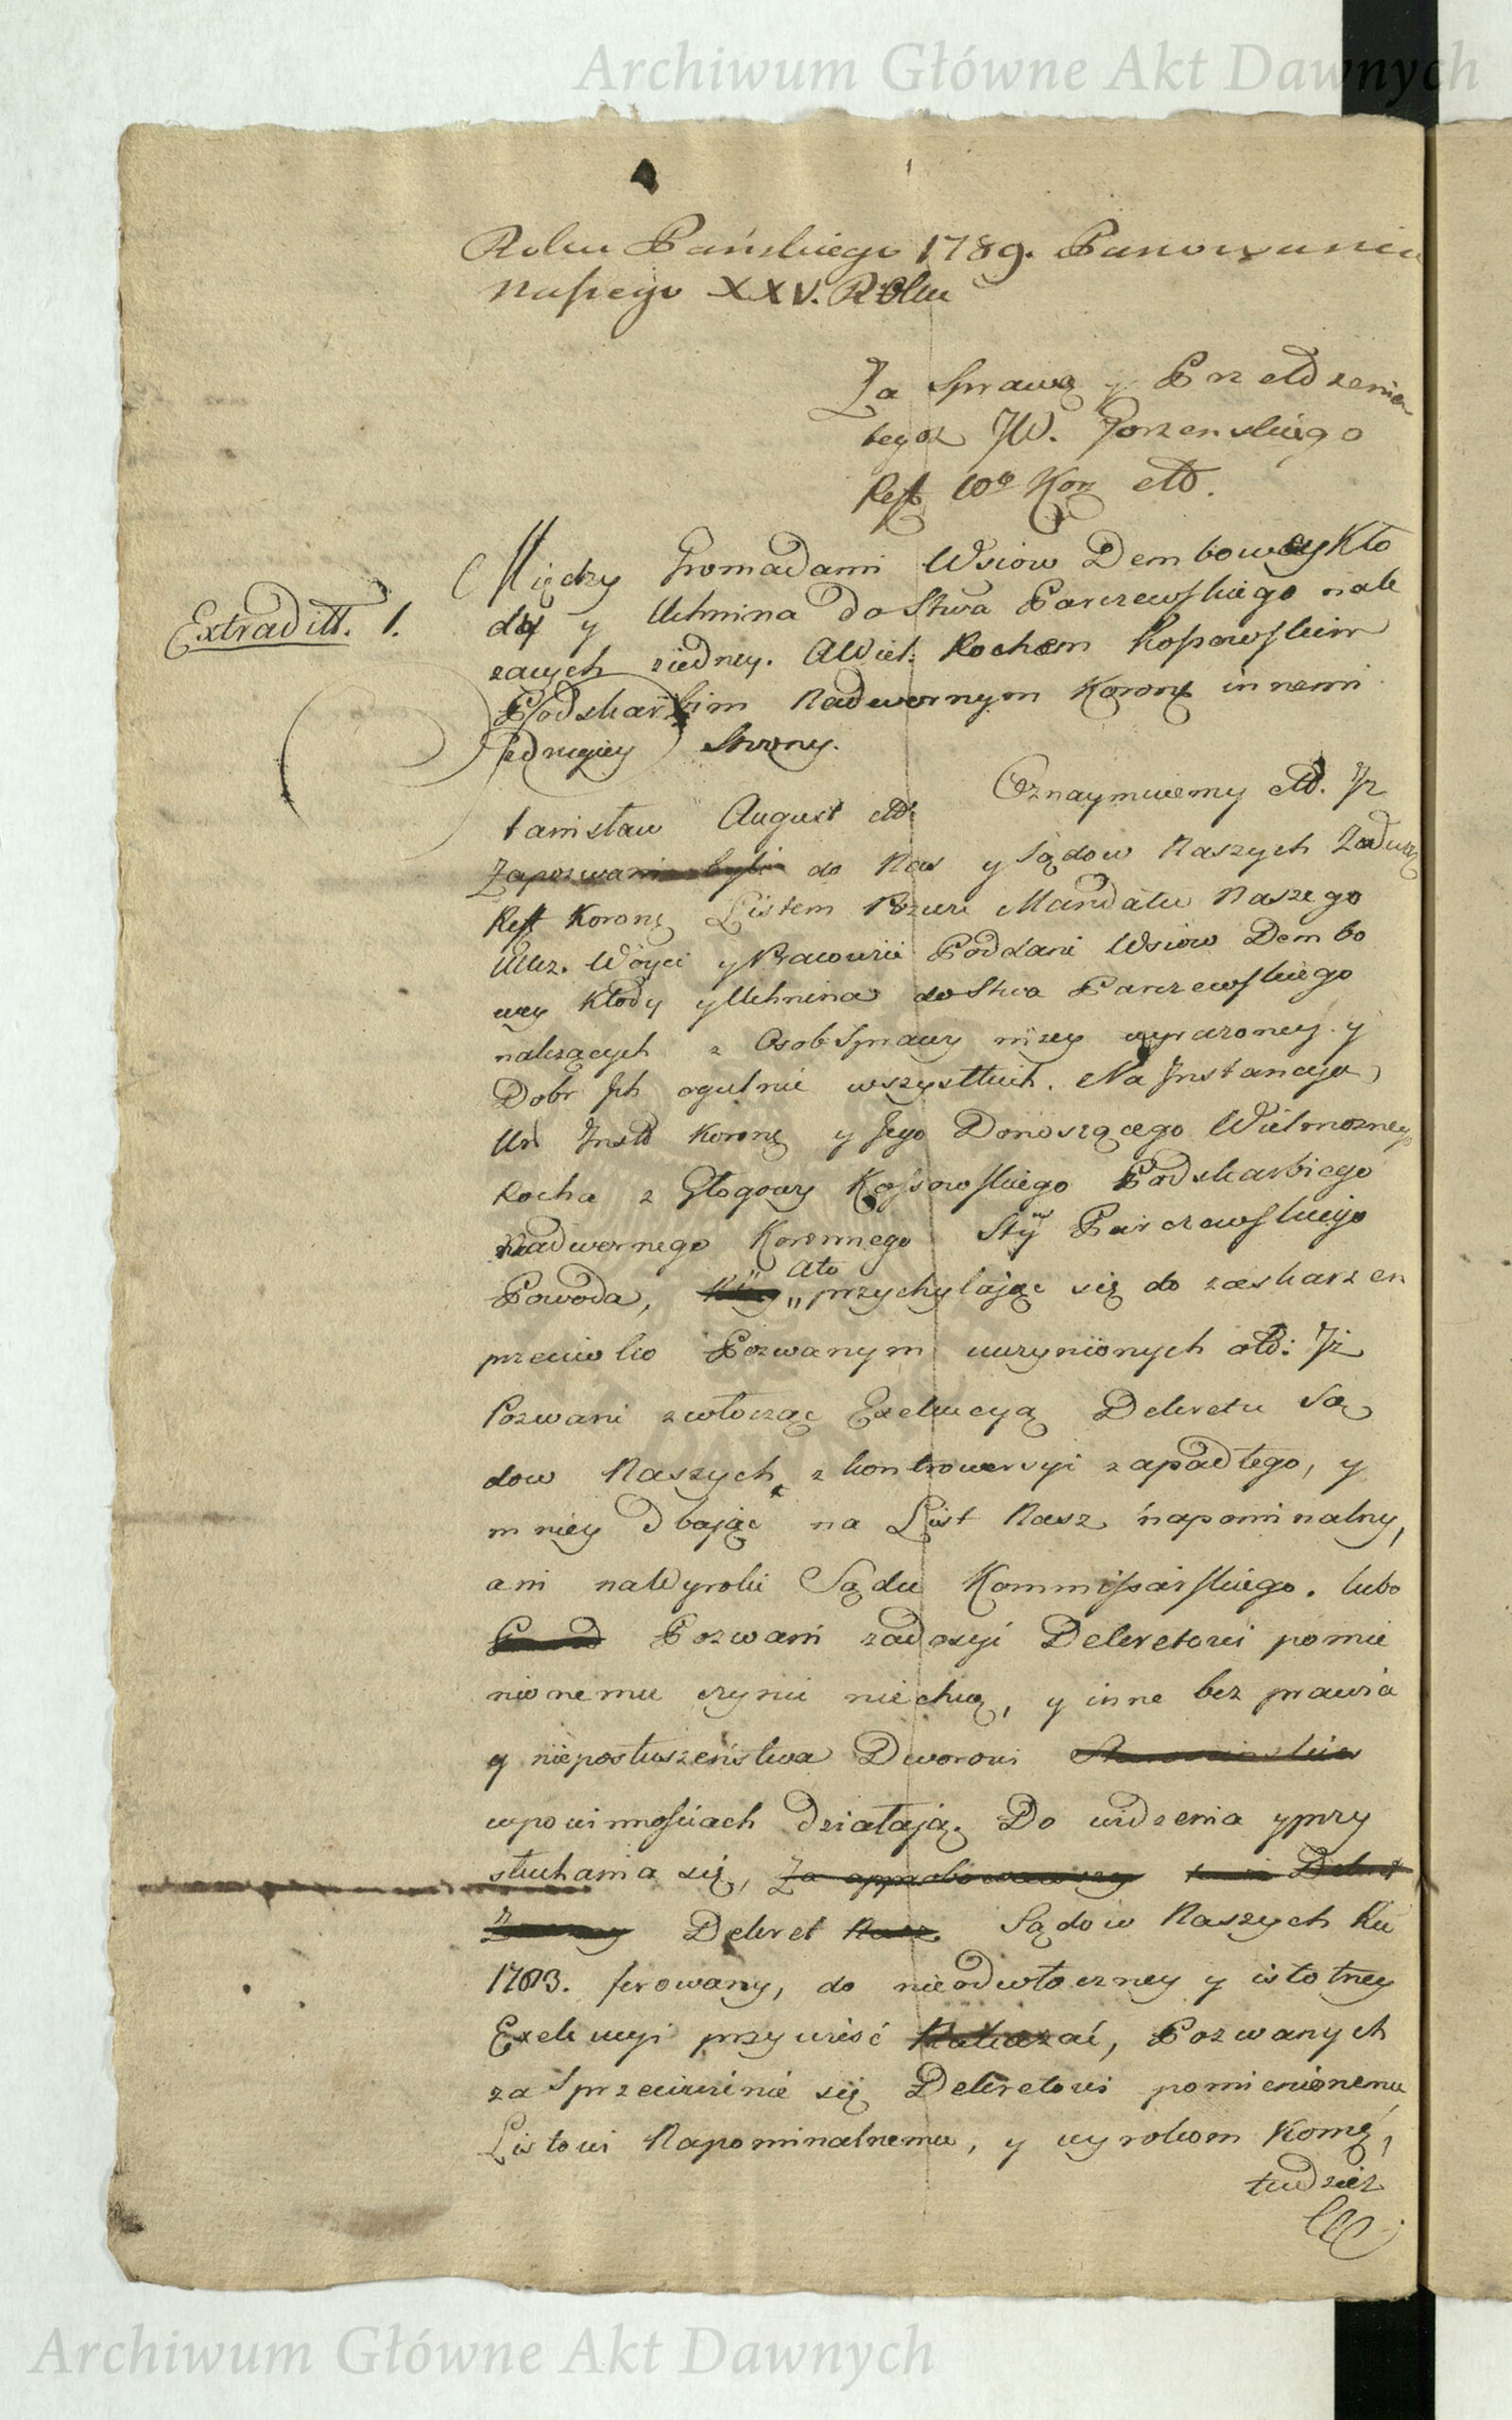 Archiwum Główne Akt Dawnych
Roku Pańskiego 1789. Panowania
Naszego XXV. Roku
Za Sprawą y Przełożenia
tegoż JW. Gorzenskiego
Reft Wo Kor etd.
Między Gromadami Wsiow Dembowey Kło
Extraditt. 1.
dy y Uhnina do Stwa Parczewskiego nale
zących ziedney. A Wiel. Rochem Kossowskim
Podskarbim Nadwornym Koronę innemi
zdrugiey Strony.
Stanisław August etd. Oznaymuiemy etd. Jż
Zapozwani byli do Nas y Sądow Naszych Zadwor
Reft Koronę Listem Pozwu Mandatu Naszego
Ucz. Woyci y Pracowici Poddani Wsiow Dembo
wey Kłody y Uhnina do Stwa Parczewskiego
nalezących z Osob Sprawy nizey wyrazoney y
Dobr Jch ogulnie wszystkich. Na Jnstancyą
Ur Jnstt Koronę y Jego Donoszącego Wielmoznego
Rocha z Głogowy Kossowskiego Podskarbiego
Nadwornego Koronnego Stty Parczewskiego
Ato
Powoda, przychylaiąc się do zaskarzen
przeciwko Pozwanym uczynionych etd: Jż
Pozwani zwłocząc Exekucyą Dekretu Są
dow Naszych z kontrowersyi zapadłego, y
mniey dbaiąc na List Nasz napominalny,
ani na Wyroki Sądu Kommissarskiego. lubo
Pozwani zadosyć Dekretowi pomie
nionemu czynić niechcą, y inne bez prawia
y nieposłuszeństwa Dworowi
wpowinnościach działaią. Do widzenia y przy
słuchania się, Za approbowawszy Dekret
Dekret Nasz Sądow Naszych Ru
1783. ferowany, do nieodwłoczney y istotney
Exekucyi przywieść Nakazać, Pozwanych
za Sprzeciwienie się Dekretowi pomienionemu
Listowi Napominalnemu, y wyrokom Komę,
tudziez
Archiwum Główne Akt Dawnych